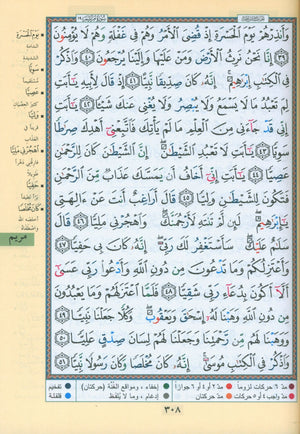 وَأَنذِرْهُمْ يَوْمَ الْحَسْرَةِ إِذْ قُضِيَ الْأَمْرُ وَهُمْ فِي غَفْلَةٍ وَهُمْ لَا يُؤْمِنُونَ
٣٩ إِنَّا نَحْنُ نَرِثُ الْأَرْضَ وَمَنْ عَلَيْهَا وَإِلَيْنَا يُرْجَعُونَ ٤٠ وَاذْكُرْ
فِي الْكِتَابِ إِبْرَاهِيمَ إِنَّهُ كَانَ صِدِّيقًا نَّبِيًّا ٤١ إِذْ قَالَ لِأَبِيهِ يَا أَبَتِ
لِمَ تَعْبُدُ مَا لَا يَسْمَعُ وَلَا يُبْصِرُ وَلَا يُغْنِي عَنكَ شَيْئًا ٤٢ يَا أَبَتِ
إِنِّي قَدْ جَاءَنِي مِنَ الْعِلْمِ مَا لَمْ يَأْتِكَ فَاتَّبِعْنِي أَهْدِكَ صِرَاطًا
سَوِيًّا ٤٣ يَا أَبَتِ لَا تَعْبُدِ الشَّيْطَانَ إِنَّ الشَّيْطَانَ كَانَ لِلرَّحْمَٰنِ
عَصِيًّا ٤٤ يَا أَبَتِ إِنِّي أَخَافُ أَن يَمَسَّكَ عَذَابٌ مِّنَ الرَّحْمَٰنِ
فَتَكُونَ لِلشَّيْطَانِ وَلِيًّا ٤٥ قَالَ أَرَاغِبٌ أَنتَ عَنْ آلِهَتِي
يَا إِبْرَاهِيمُ لَئِن لَّمْ تَنتَهِ لَأَرْجُمَنَّكَ وَاهْجُرْنِي مَلِيًّا ٤٦ قَالَ
سَلَامٌ عَلَيْكَ سَأَسْتَغْفِرُ لَكَ رَبِّي إِنَّهُ كَانَ بِي حَفِيًّا ٤٧
وَأَعْتَزِلُكُمْ وَمَا تَدْعُونَ مِن دُونِ اللَّهِ وَأَدْعُو رَبِّي عَسَىٰ
أَلَّا أَكُونَ بِدُعَاءِ رَبِّي شَقِيًّا ٤٨ فَلَمَّا اعْتَزَلَهُمْ وَمَا يَعْبُدُونَ
مِن دُونِ اللَّهِ وَهَبْنَا لَهُ إِسْحَاقَ وَيَعْقُوبَ وَكُلًّا جَعَلْنَا نَبِيًّا ٤٩
وَوَهَبْنَا لَهُم مِّن رَّحْمَتِنَا وَجَعَلْنَا لَهُمْ لِسَانَ صِدْقٍ عَلِيًّا ٥٠
وَاذْكُرْ فِي الْكِتَابِ مُوسَىٰ إِنَّهُ كَانَ مُخْلَصًا وَكَانَ رَسُولًا نَّبِيًّا ٥١
يَوْمَ الْحَسْرَةِ
سَوِيًّا
عَصِيًّا
وَلِيًّا
اهْجُرْنِي مَلِيًّا
حَفِيًّا
كَانَ مُخْلَصًا
مريم
مدّ ٦ حركات لزوماً مدّ ٢ أو ٤ أو ٦ جوازاً إخفاء، ومواقع الغُنَّة (حركتان) تفخيم
مدّ واجب ٤ أو ٥ حركات مدّ حركتان إدغام، وما لا يُلفَظ قلقلة
٣٠٨